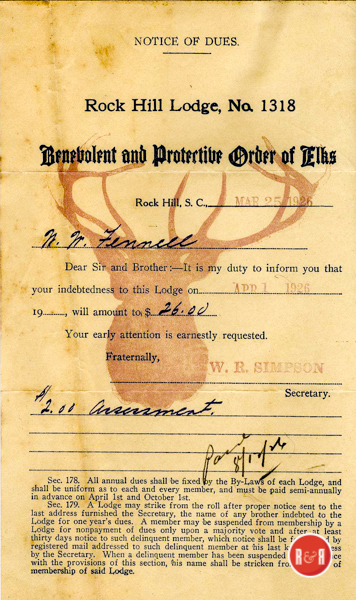 NOTICE OF DUES.
Rock Hill Lodge, No. 1318
Benevolent and Protective Order of Elks
Rock Hill, S. C., MAR 25 1926
W. W. Fennell
Dear Sir and Brother:—It is my duty to inform you that
your indebtedness to this Lodge on APR 1 1926
19......, will amount to $ 26.00
Your early attention is earnestly requested.
Fraternally,
W. R. SIMPSON
Secretary.
$2.00 Assessment.
Paid
8/10/26
Sec. 178. All annual dues shall be fixed by the By-Laws of each Lodge, and
shall be uniform as to each and every member, and must be paid semi-annually
in advance on April 1st and October 1st.
Sec. 179. A Lodge may strike from the roll after proper notice sent to the
last address furnished the Secretary, the name of any brother indebted to the
Lodge for one year's dues. A member may be suspended from membership by a
Lodge for nonpayment of dues only upon a majority vote and after at least
thirty days notice to such delinquent member, which notice shall be
registered mailed addressed to such delinquent member at his last
by the Secretary. When a delinquent member has been suspended
with the provisions of this section, his name shall be stricken from
membership of said Lodge.
R&R